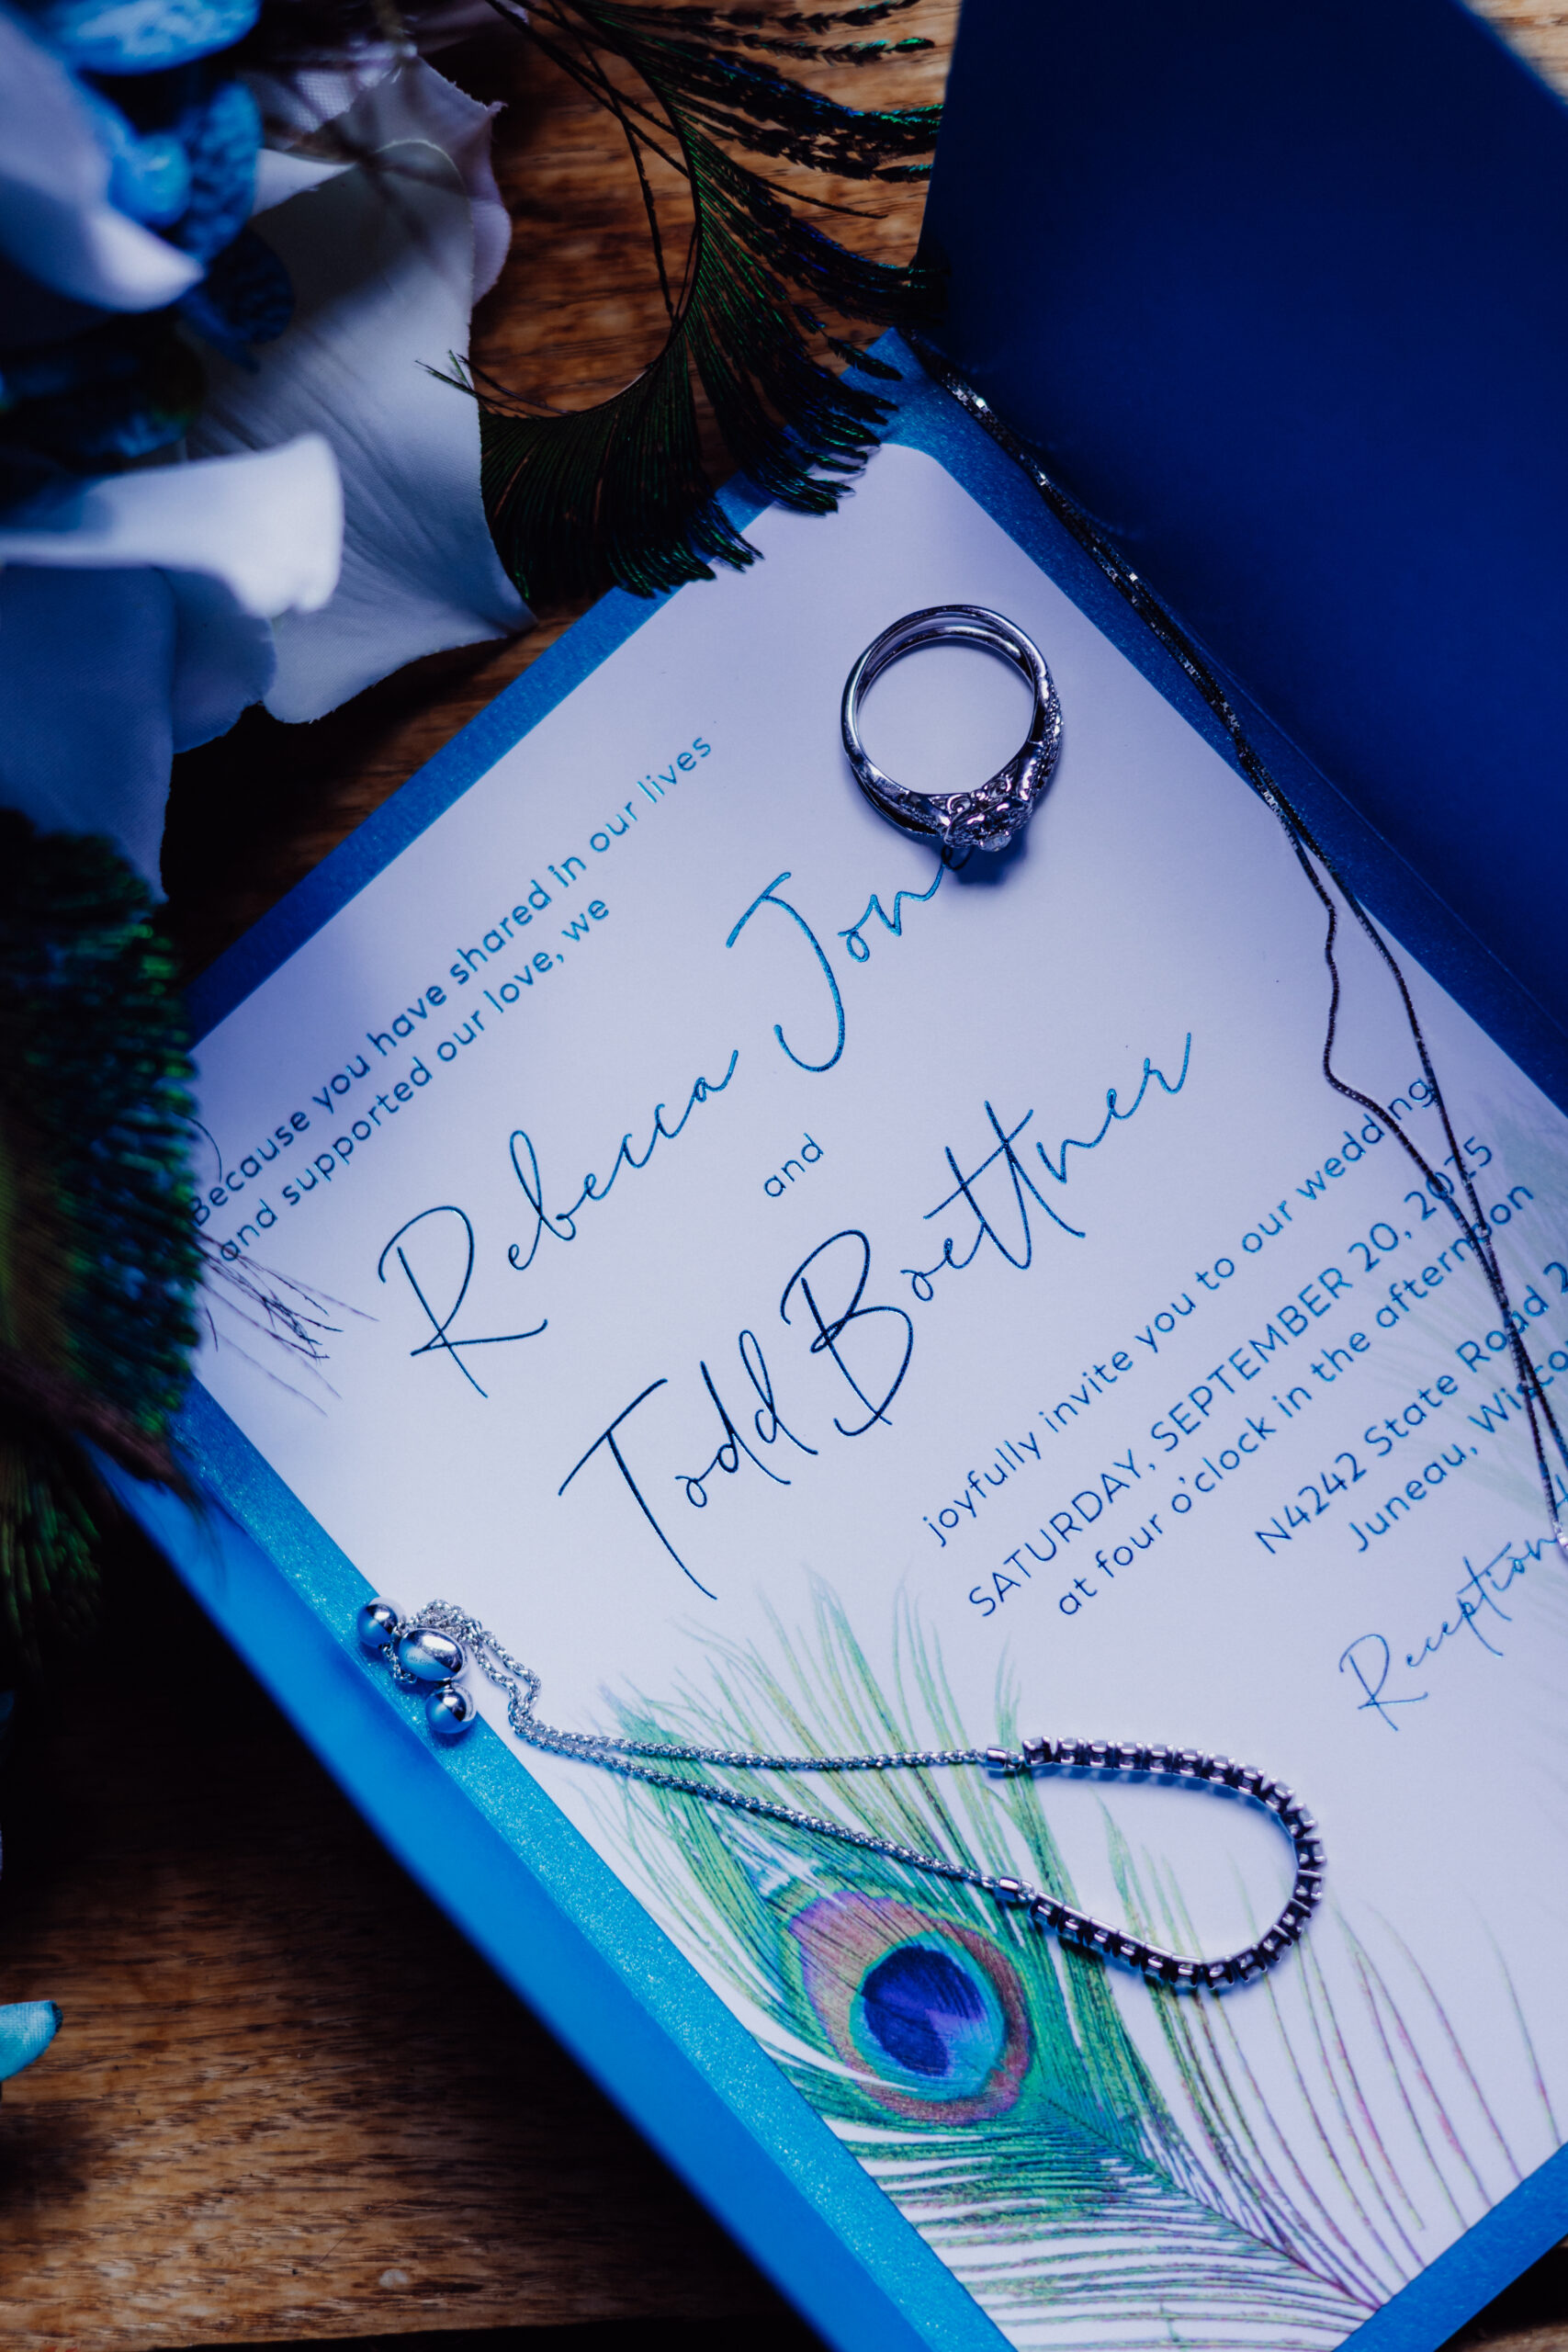 Because you have shared in our lives
and supported our love, we
Rebecca
and
Todd Boettner
joyfully invite you to our wedding
SATURDAY, SEPTEMBER 20, 2025
at four o'clock in the afternoon
N4242 State Road
Juneau,
Reception